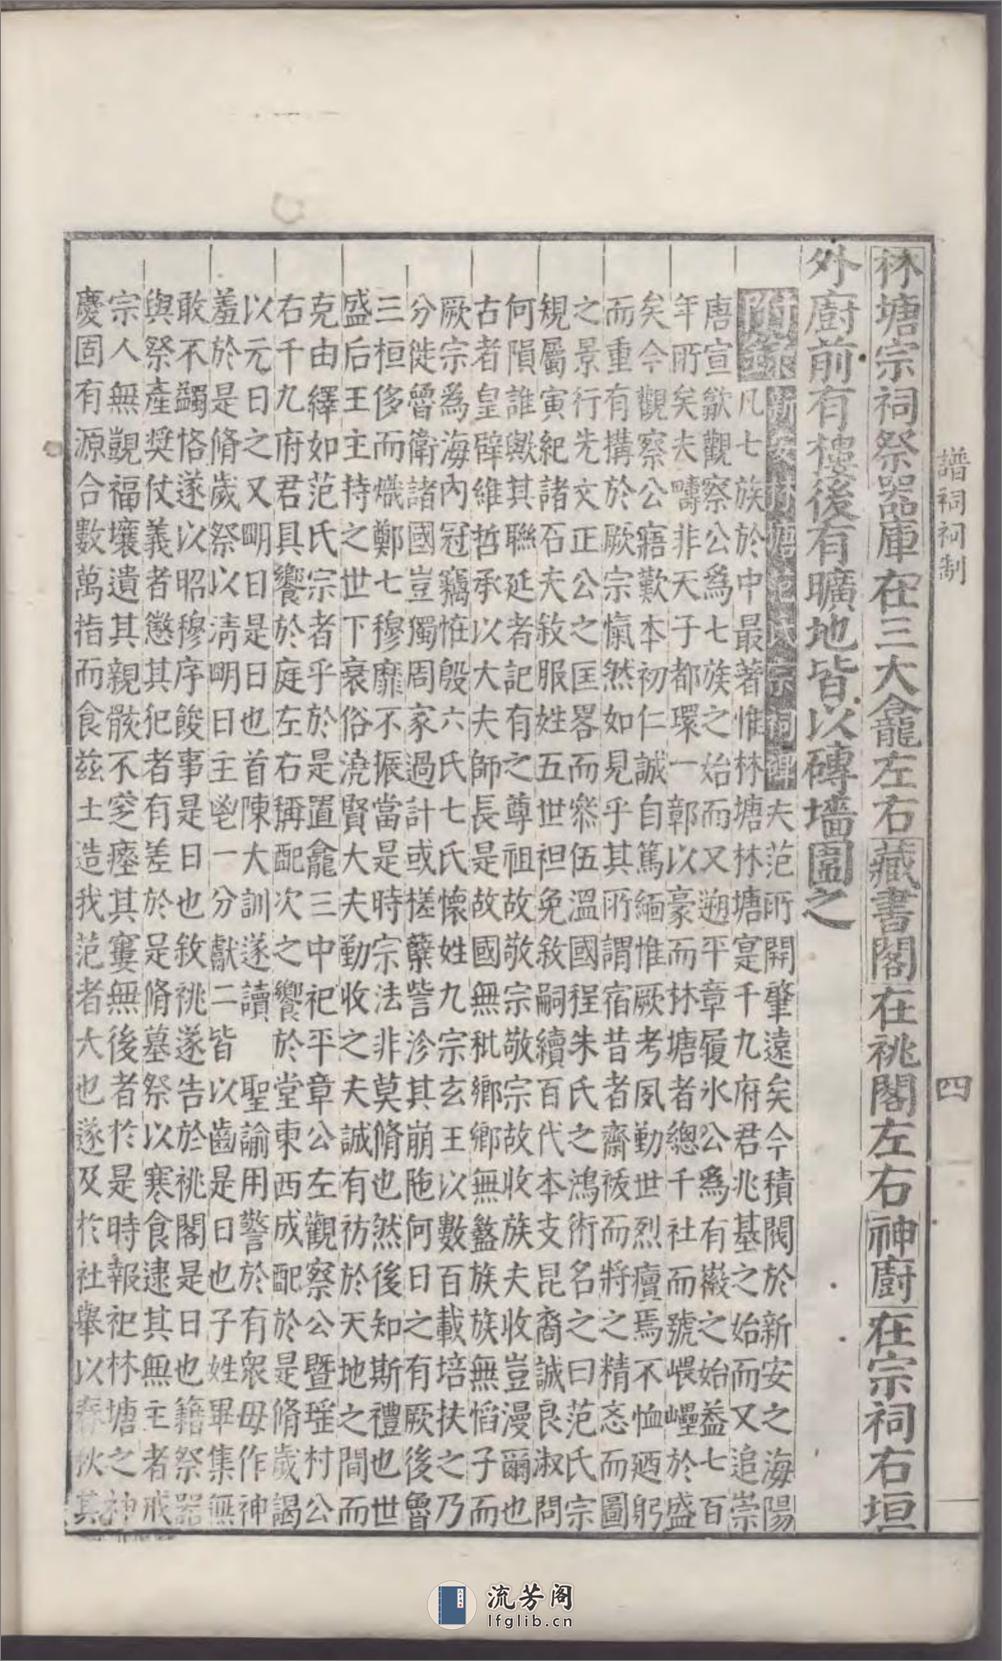 林塘宗祠祭器庫在三大龕左右藏書閣在祧閣左右神廚在宗祠右垣
外廚前有樓後有曠地皆以磚墻圍之
附錄 新安林塘范氏宗祠碑 夫范所開肇遠矣今積閥於新安之海陽
凡七族於中最著惟林塘林塘寔千九府君兆基之始而又追崇
唐宣歙觀察公為七族之始而又遡平章履冰公為有徽之始益七百
年所矣夫疇非天子都環一鄣以豪而林塘者總千社而號㟪壘於盛
矣今觀察公寤歎本初仁誠自篤緬惟厥考夙勤世烈癠焉不恤廼躬
而重有搆於厥宗愾然如見乎其所謂宿昔者齋祓而將之精忞而圖
之景行先文正公之匡畧而叅伍溫國程朱氏之鴻術名之曰范氏宗
規屬寅紀諸石夫敘服姓五世袒免敘嗣續百代本支昆裔誠良淑問
何隕誰歟其聯延者記有之尊祖故敬宗敬宗故收族夫收豈漫爾也
古者皇辟維哲承以大夫師長是故國無秕鄉鄉無盭族族無慆子而
厥宗為海內冠竊惟殷六氏七氏懷姓九宗玄王以數百載培扶之乃
分徙魯衛諸國豈獨周家過計或槎櫱訾沴其崩阤何日之有厥後魯
三桓侈而熾鄭七穆靡不振當是時宗法非莫脩也然後知斯禮也世
盛后王主持之世下衰俗澆賢大夫勤收之夫誠有祊於天地之間而
克由繹如范氏宗者乎於是置龕三中祀平章公左觀察公暨瑤村公
右千九府君具饗於庭左右稱配次之饗於堂東西成配於是脩歲謁
以元日之又眀日是日也首陳大訓遂讀 聖諭用警於有眾毋作神
羞於是脩歲祭以清眀日主鬯一分獻二皆以齒是日也子姓畢集無
敢不蠲恪遂以昭穆序餕事是日也敘祧遂告於祧閣是日也籍祭器
與祭產奬仗義者懲其犯者有差於是脩墓祭以寒食逮其無主者戒
宗人無覬福壤遺其親骸不窆瘞其窶無後者於是時報祀林塘之神
慶固有源合數萬指而食茲土造我范者大也遂及於社舉以春秋其
譜祠 祠制
四
流芳阁
lfglib.cn